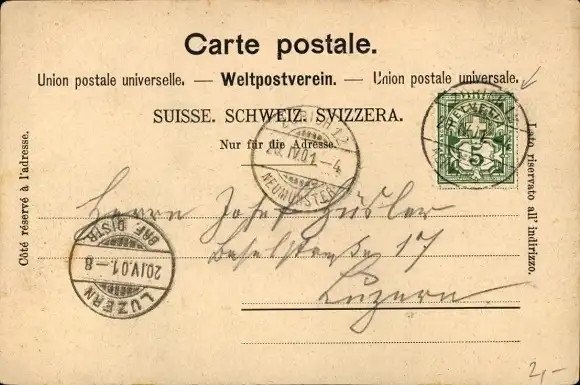 Carte postale.
Union postale universelle. — Weltpostverein. — Union postale universale.
SUISSE. SCHWEIZ. SVIZZERA.
Nur für die Adresse.
Côté réservé à l'adresse.
Lato riservato all' indirizzo.
ZÜRICH 12
20.IV.01.–4
NEUMÜNSTER
HELVETIA
5
Herrn Josef
17
Luzern.
BRF. DISTR.
20.IV.01.–8
LUZERN
2,-